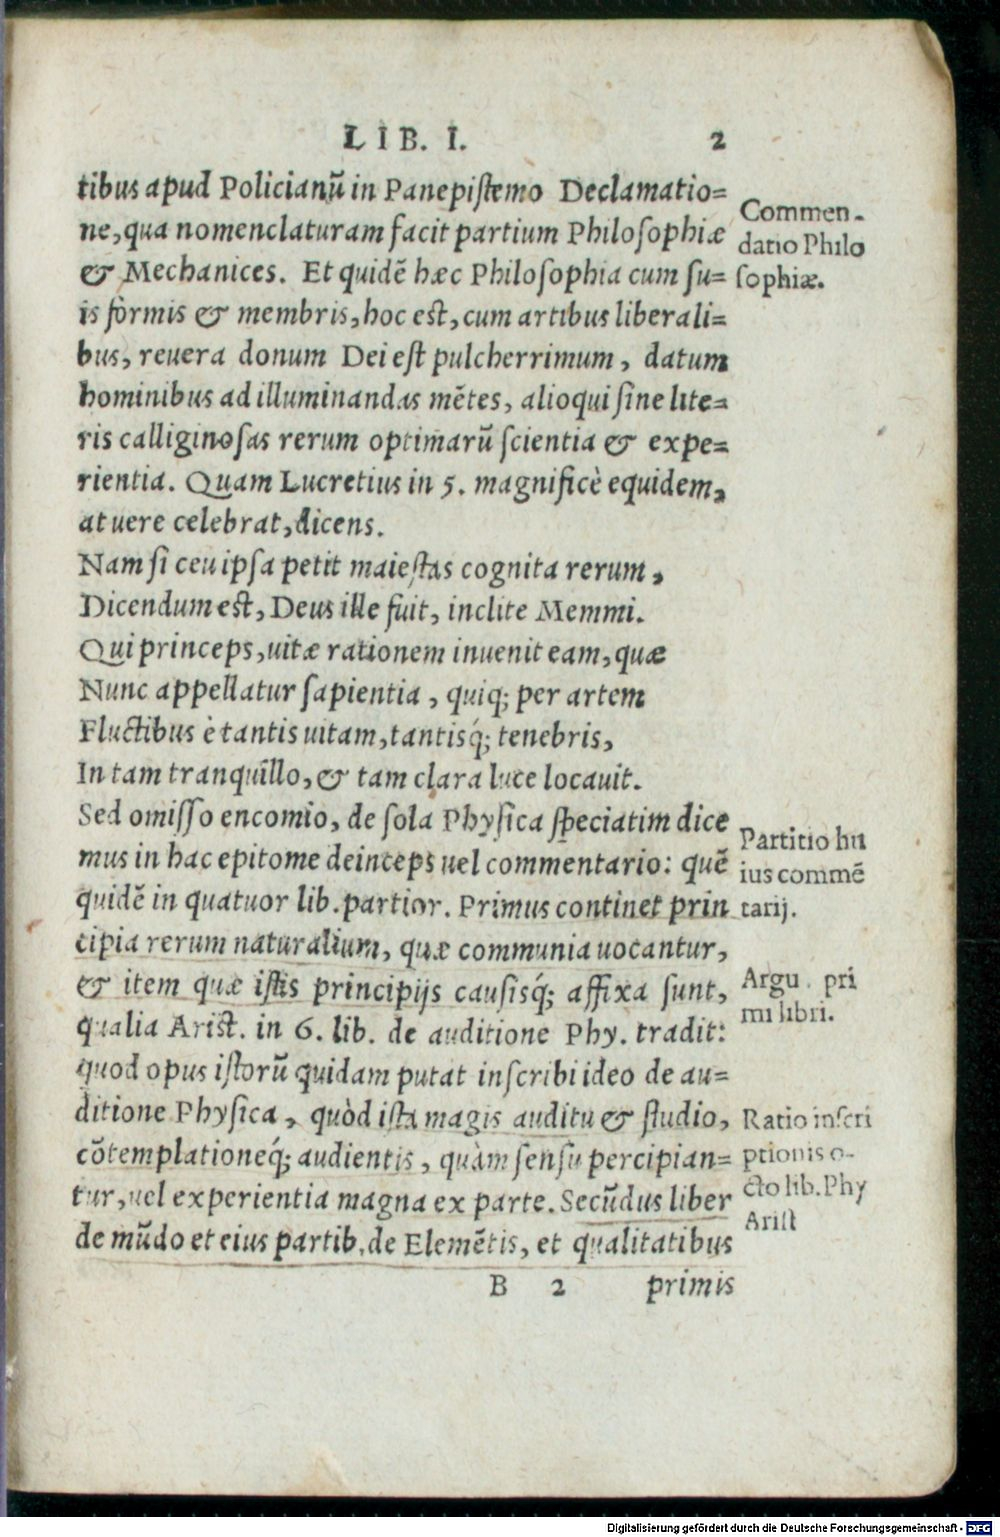 LIB. I. 2
tibus apud Policianū in Panepistemo Declamatio=
ne, qua nomenclaturam facit partium Philosophiæ
& Mechanices. Et quidē hæc Philosophia cum su=
is formis & membris, hoc est, cum artibus liberali=
bus, reuera donum Dei est pulcherrimum, datum
hominibus ad illuminandas mētes, alioqui sine lite=
ris calliginosas rerum optimarū scientia & expe=
rientia. Quam Lucretius in 5. magnificè equidem,
at uere celebrat, dicens.
Nam si ceu ipsa petit maiestas cognita rerum,
Dicendum est, Deus ille fuit, inclite Memmi.
Qui princeps, uitæ rationem inuenit eam, quæ
Nunc appellatur sapientia, quiq; per artem
Fluctibus è tantis uitam, tantisq́; tenebris,
In tam tranquillo, & tam clara luce locauit.
Sed omisso encomio, de sola Physica speciatim dice
mus in hac epitome deinceps uel commentario: quē
quidē in quatuor lib. partior. Primus continet prin
cipia rerum naturalium, quæ communia uocantur,
& item quæ istis principijs causisq́; affixa sunt,
qualia Arist. in 6. lib. de auditione Phy. tradit:
quod opus istorū quidam putat inscribi ideo de au=
ditione Physica, quòd ista magis auditu & studio,
cōtemplationeq́; audientis, quàm sensu percipian=
tur, uel experientia magna ex parte. Secūdus liber
de mūdo et eius partib. de Elemētis, et qualitatibus
B 2 primis
Commen-
datio Philo
sophiæ.
Partitio hu
ius commē
tarij.
Argu. pri
mi libri.
Ratio inscri
ptionis o-
cto lib. Phy
Arist
Digitalisierung gefördert durch die Deutsche Forschungsgemeinschaft - DFG